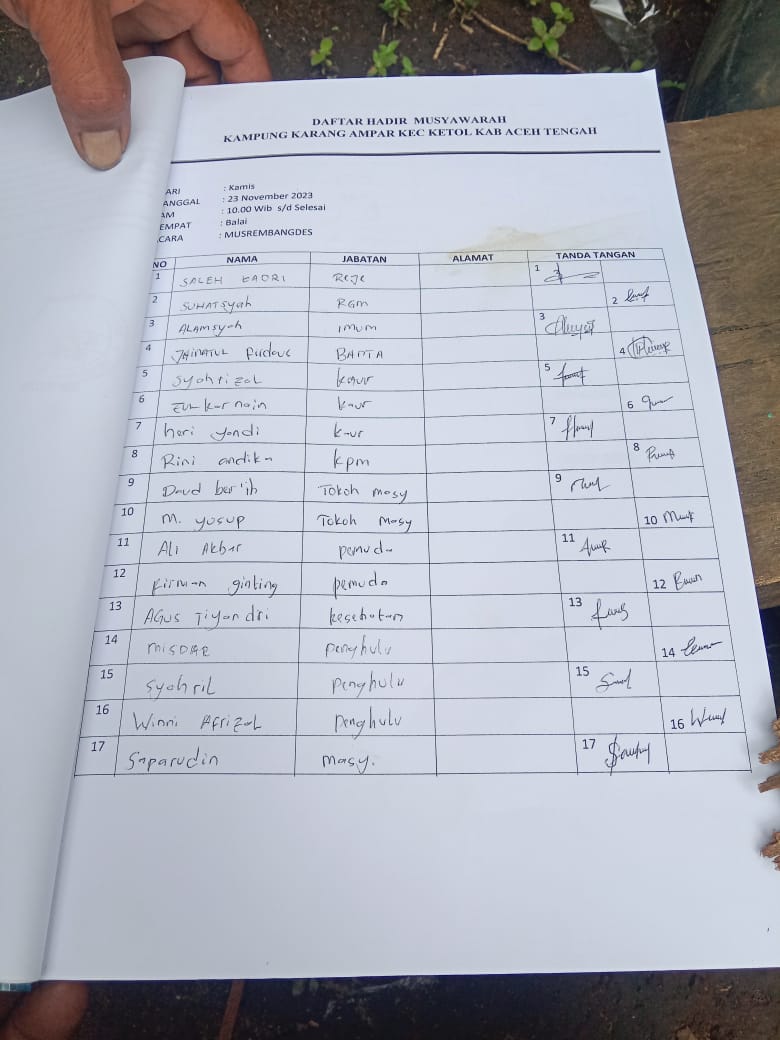 DAFTAR HADIR MUSYAWARAH
KAMPUNG KARANG AMPAR KEC KETOL KAB ACEH TENGAH
ARI : Kamis
ANGGAL : 23 November 2023
AM : 10.00 Wib s/d Selesai
EMPAT : Balai
CARA : MUSREMBANGDES
NO NAMA JABATAN ALAMAT TANDA TANGAN
1 SALEH KADRI Reje 1
2 SUHATSyah RGM 2
3 ALAMSyah imum 3
4 Firdaus BANTA 4
5 Syahrizal kaur 5
6 ZULkarnain kaur 6
7 heri yandi kaur 7
8 Rini andika kpm 8
9 Daud Tokoh masy 9
10 M. yusup Tokoh Masy 10
11 Ali Akbar pemuda 11
12 Firman ginting pemuda 12
13 AGUS Tiyandri kesehatan 13
14 MISDAR penghulu 14
15 Syahril Penghulu 15
16 Winni Afrizal penghulu 16
17 Saparudin masy. 17